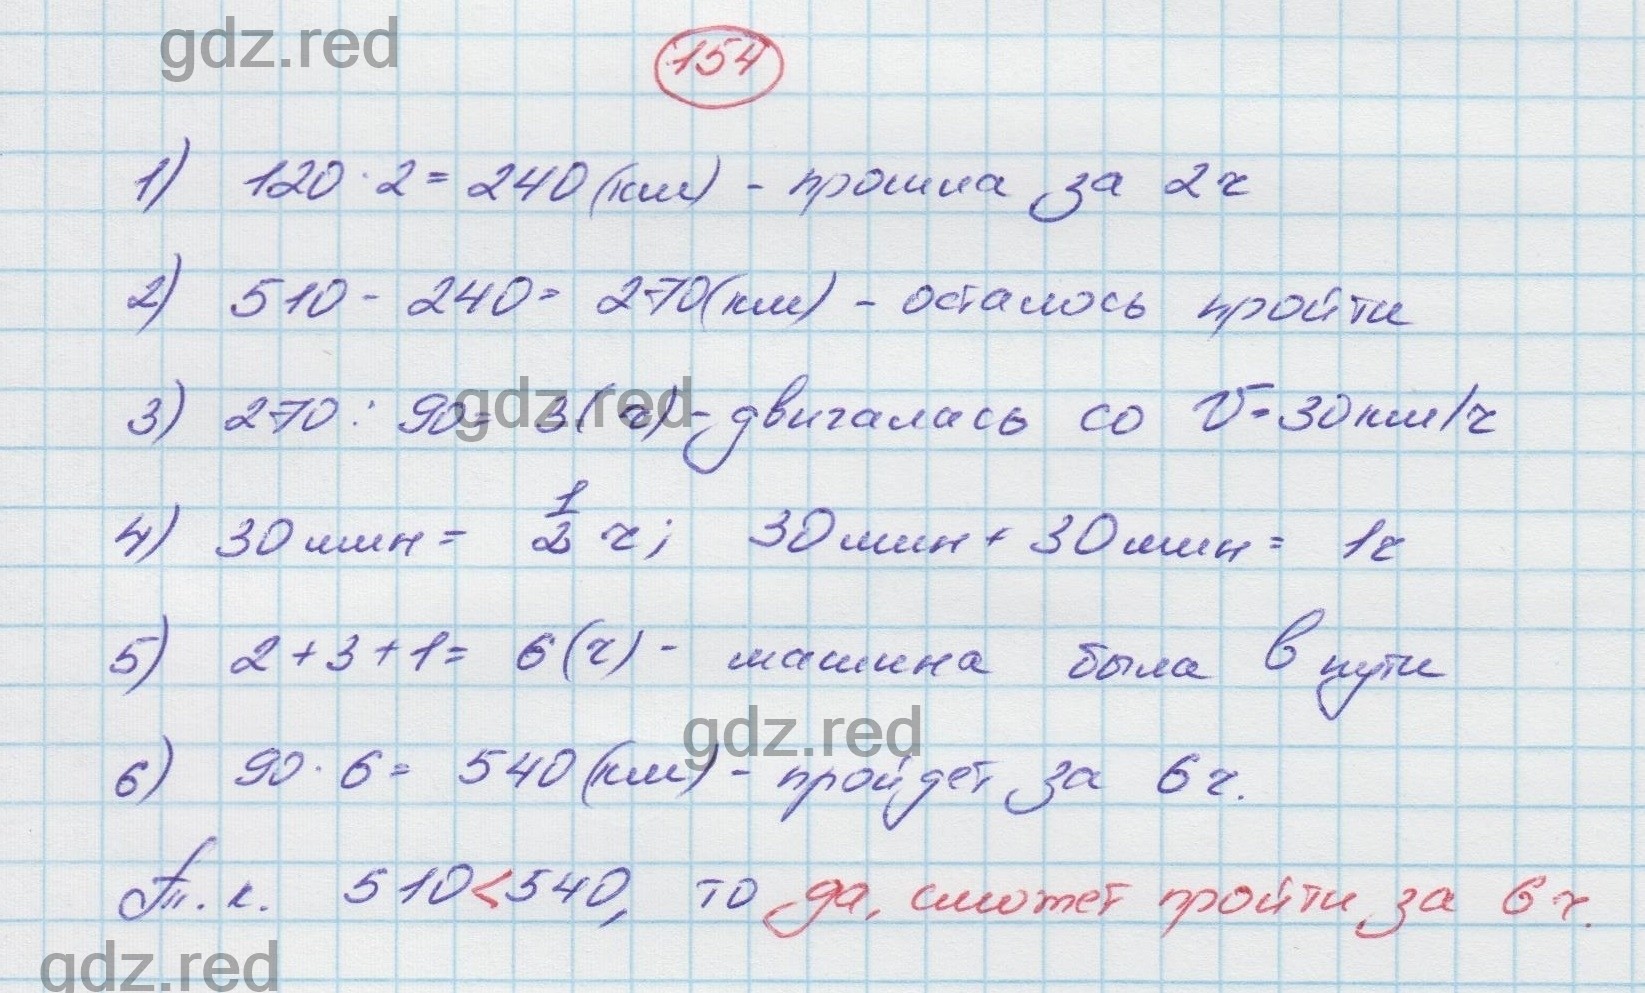 gdz.red
154
1) 120 · 2 = 240 (км) - прошла за 2ч
2) 510 - 240 = 270 (км) - осталось пройти
3) 270 : 90 = 3 (ч) - двигалась со V = 30 км/ч
gdz.red
4) 30 мин = 1/2 ч; 30 мин + 30 мин = 1ч
5) 2 + 3 + 1 = 6 (ч) - машина была в пути
gdz.red
6) 90 · 6 = 540 (км) - пройдет за 6ч.
Т.к. 510 < 540, то да, сможет пройти за 6ч.
gdz.red